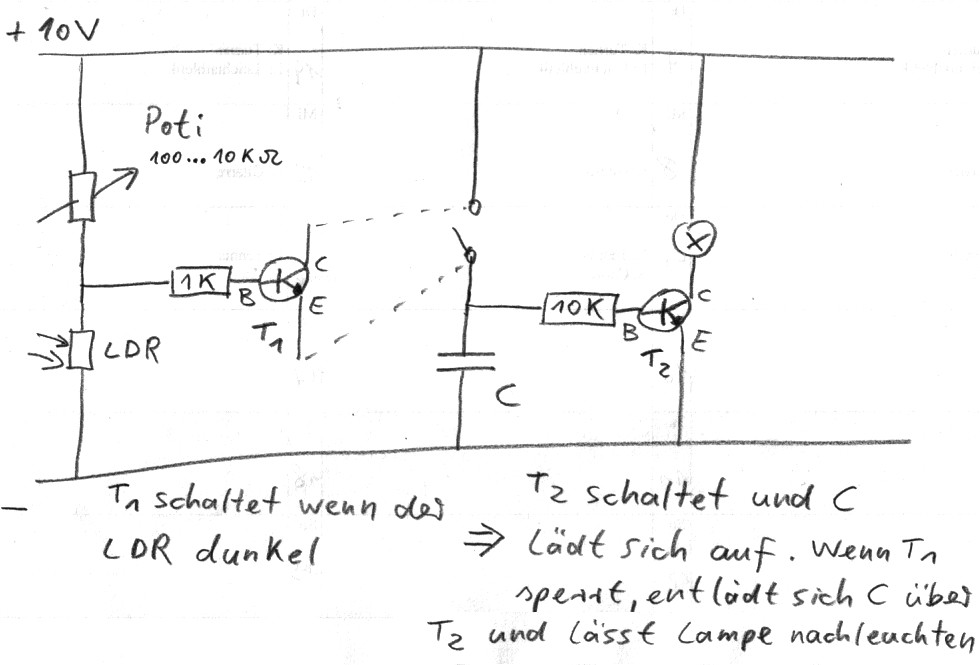 + 10V
Poti
100...10KΩ
1K
B
C
E
T1
LDR
C
10K
B
C
E
T2
-
T1 schaltet wenn der
LDR dunkel
T2 schaltet und C
⇒ lädt sich auf. Wenn T1
sperrt, entlädt sich C über
T2 und lässt Lampe nachleuchten